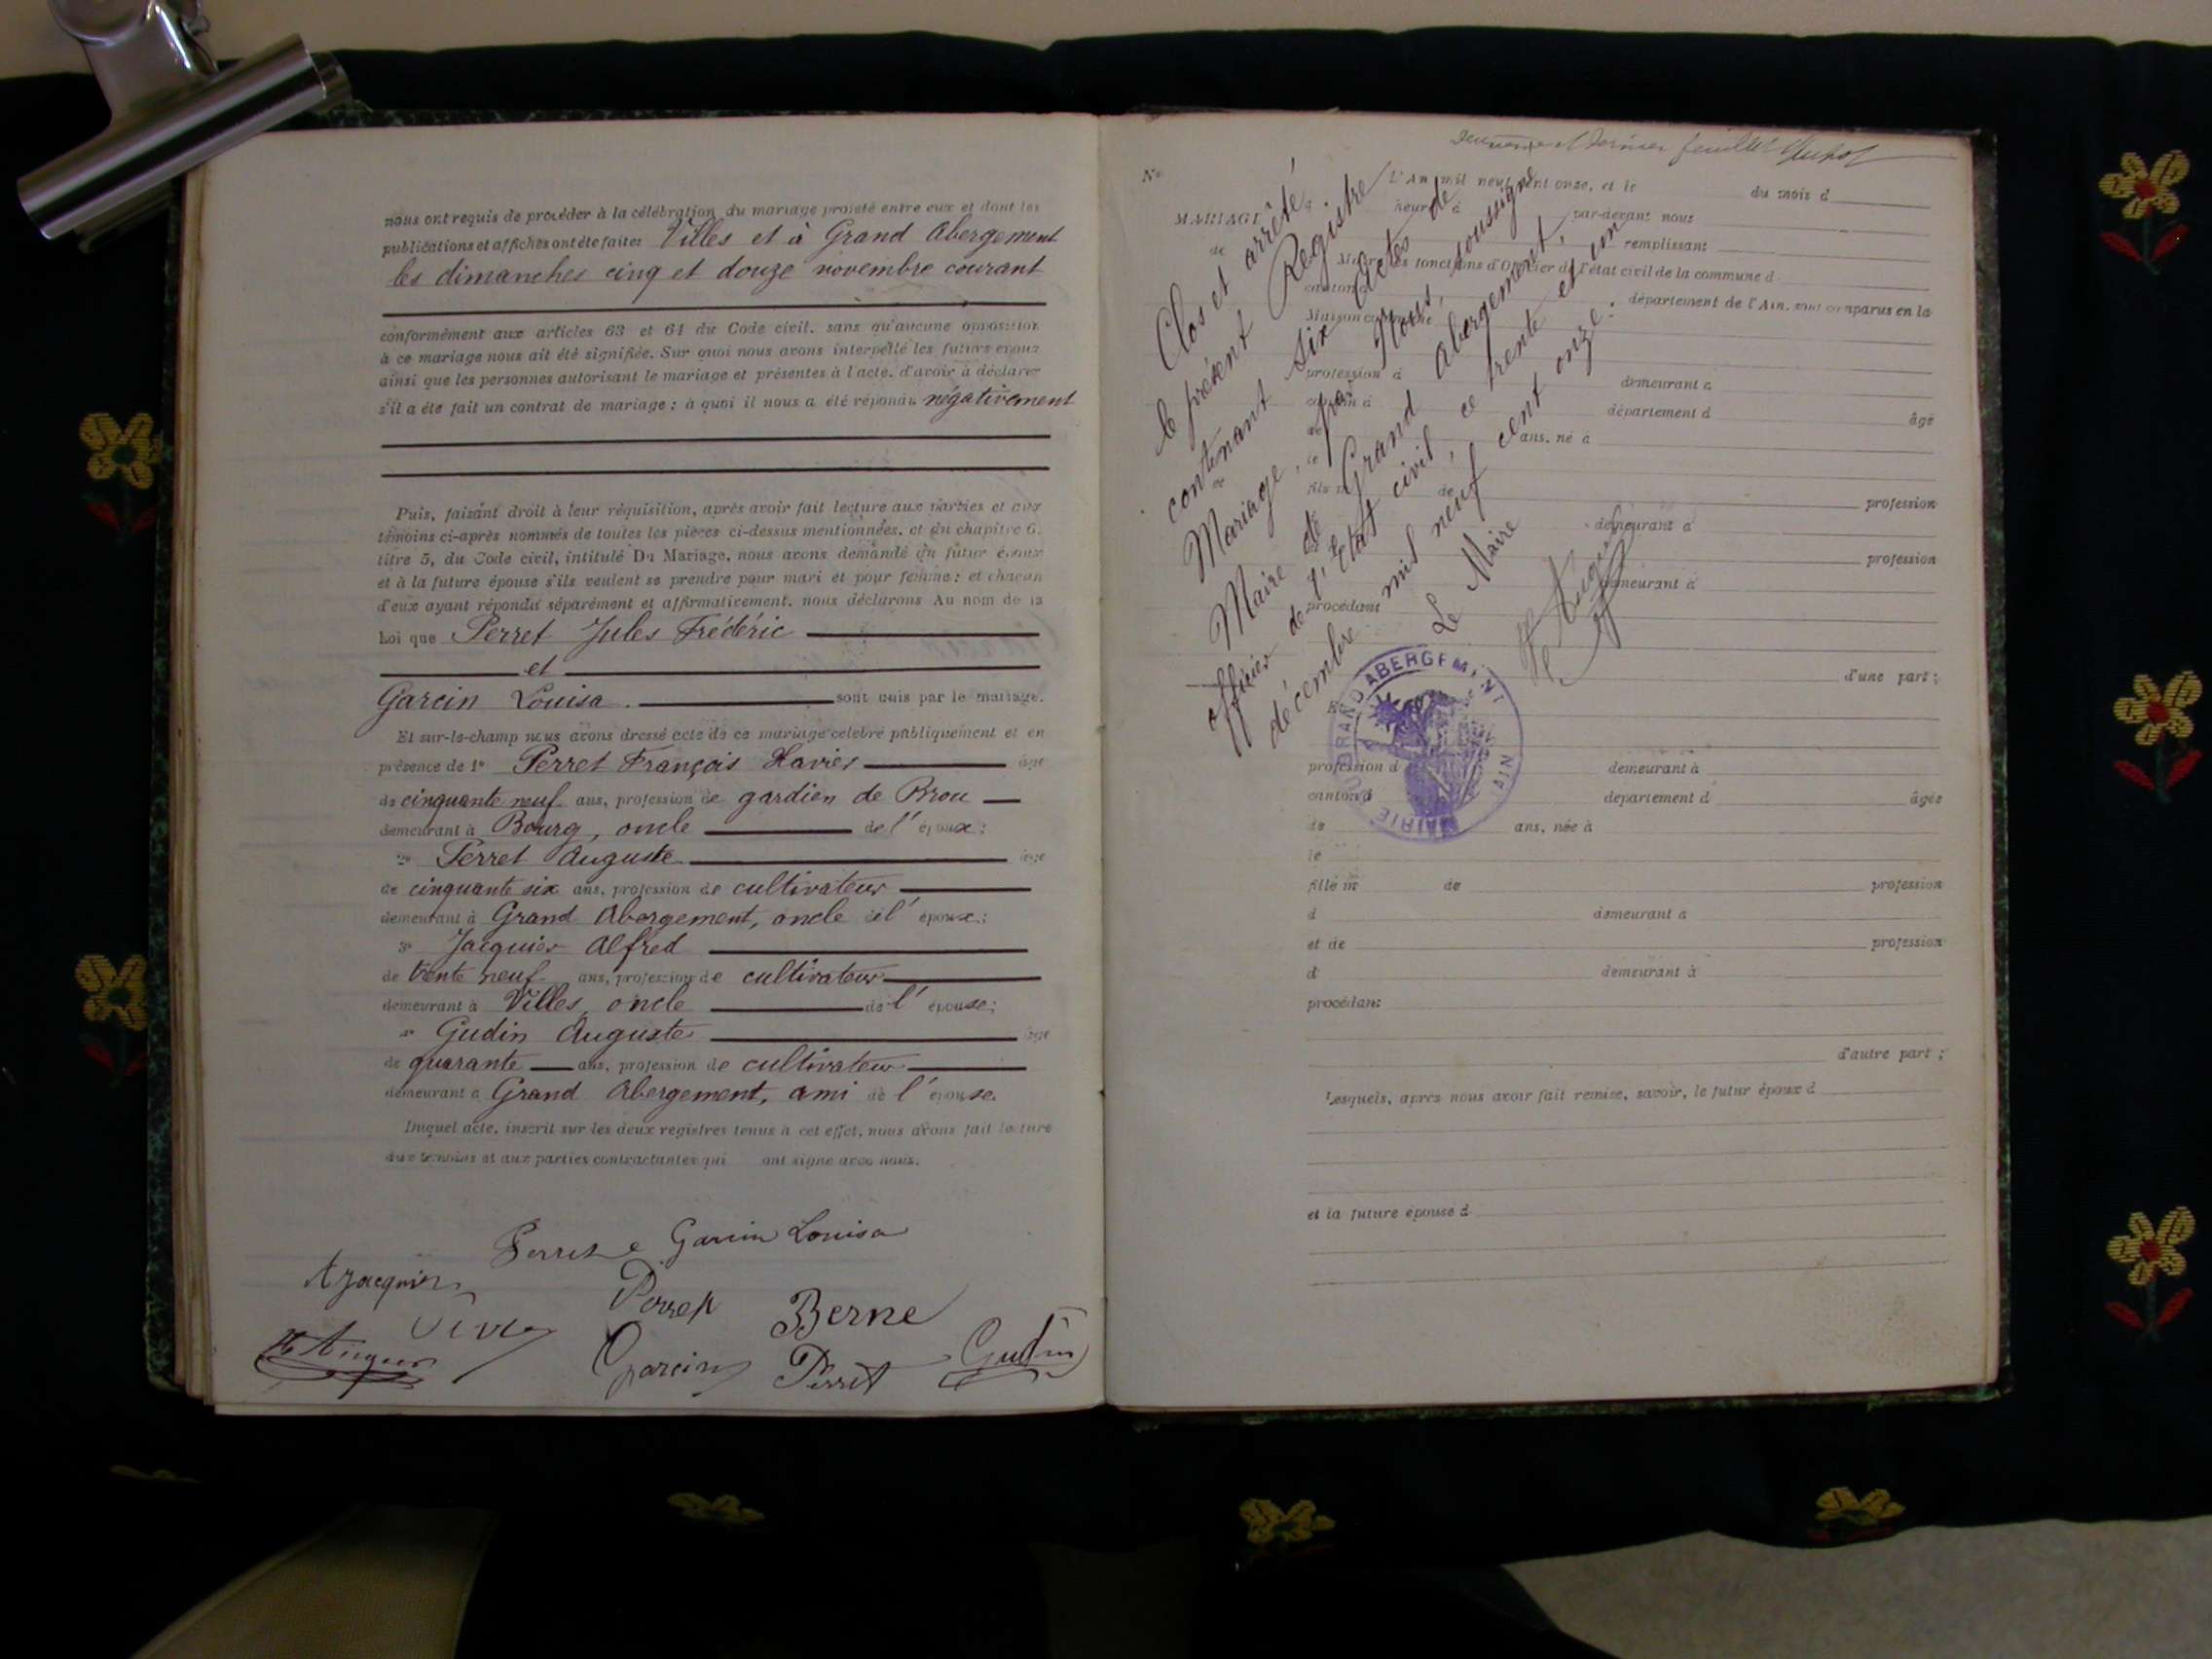 nous ont requis de procéder à la célébration du mariage projeté entre eux et dont les
publications et affiches ont été faites Villes et à Grand Abergement
les dimanches cinq et douze novembre courant
conformément aux articles 63 et 64 du Code civil, sans qu'aucune opposition
à ce mariage nous ait été signifiée. Sur quoi nous avons interpellé les futurs époux
ainsi que les personnes autorisant le mariage et présentes à l'acte, d'avoir à déclarer
s'il a été fait un contrat de mariage; à quoi il nous a été répondu négativement
Puis, faisant droit à leur réquisition, après avoir fait lecture aux parties et aux
témoins ci-après nommés de toutes les pièces ci-dessus mentionnées, et du chapitre 6,
titre 5, du Code civil, intitulé Du Mariage, nous avons demandé au futur époux
et à la future épouse s'ils veulent se prendre pour mari et pour femme; et chacun
d'eux ayant répondu séparément et affirmativement, nous déclarons Au nom de la
Loi que Perret Jules Frédéric
et
Garcin Louisa. sont unis par le mariage.
Et sur-le-champ nous avons dressé acte de ce mariage célébré publiquement et en
présence de 1° Perret François Xavier âgé
de cinquante neuf ans, profession de gardien de Brou
demeurant à Bourg, oncle de l'époux;
2° Perret Auguste âgé
de cinquante six ans, profession de cultivateur
demeurant à Grand Abergement, oncle de l'époux;
3° Jacquier Alfred
de trente neuf ans, profession de cultivateur
demeurant à Villes, oncle de l'épouse;
4° Gudin Auguste âgé
de quarante ans, profession de cultivateur
demeurant à Grand Abergement, ami de l'épouse.
Duquel acte, inscrit sur les deux registres tenus à cet effet, nous avons fait lecture
aux témoins et aux parties contractantes qui ont signé avec nous.
Perret Garcin Louisa
A Jacquier
Perret Berne
Garcin Perret Gudin
et dernier feuillet
N°
L'An mil neuf cent onze, et le du mois d
MARIAGE heure à par-devant nous
de remplissant
les fonctions d'Officier de l'état civil de la commune d
canton d département de l'Ain, sont comparus en la
Maison commune
profession d demeurant à
canton d département d âgé
de ans, né à
le
fils de profession
demeurant à
profession
demeurant à
procédant
d'une part;
Clos et arrêté
le présent Registre
contenant six Actes de
Mariage, par Nous, soussigné
Maire de Grand Abergement,
officier de l'Etat civil, ce trente et un
décembre mil neuf cent onze.
Le Maire
MAIRIE DU GRAND ABERGEMENT
AIN
Et
profession d demeurant à
canton d département d âgée
de ans, née à
le
fille de profession
d demeurant à
et de profession
d demeurant à
procédant
d'autre part;
Lesquels, après nous avoir fait remise, savoir, le futur époux d
et la future épouse d